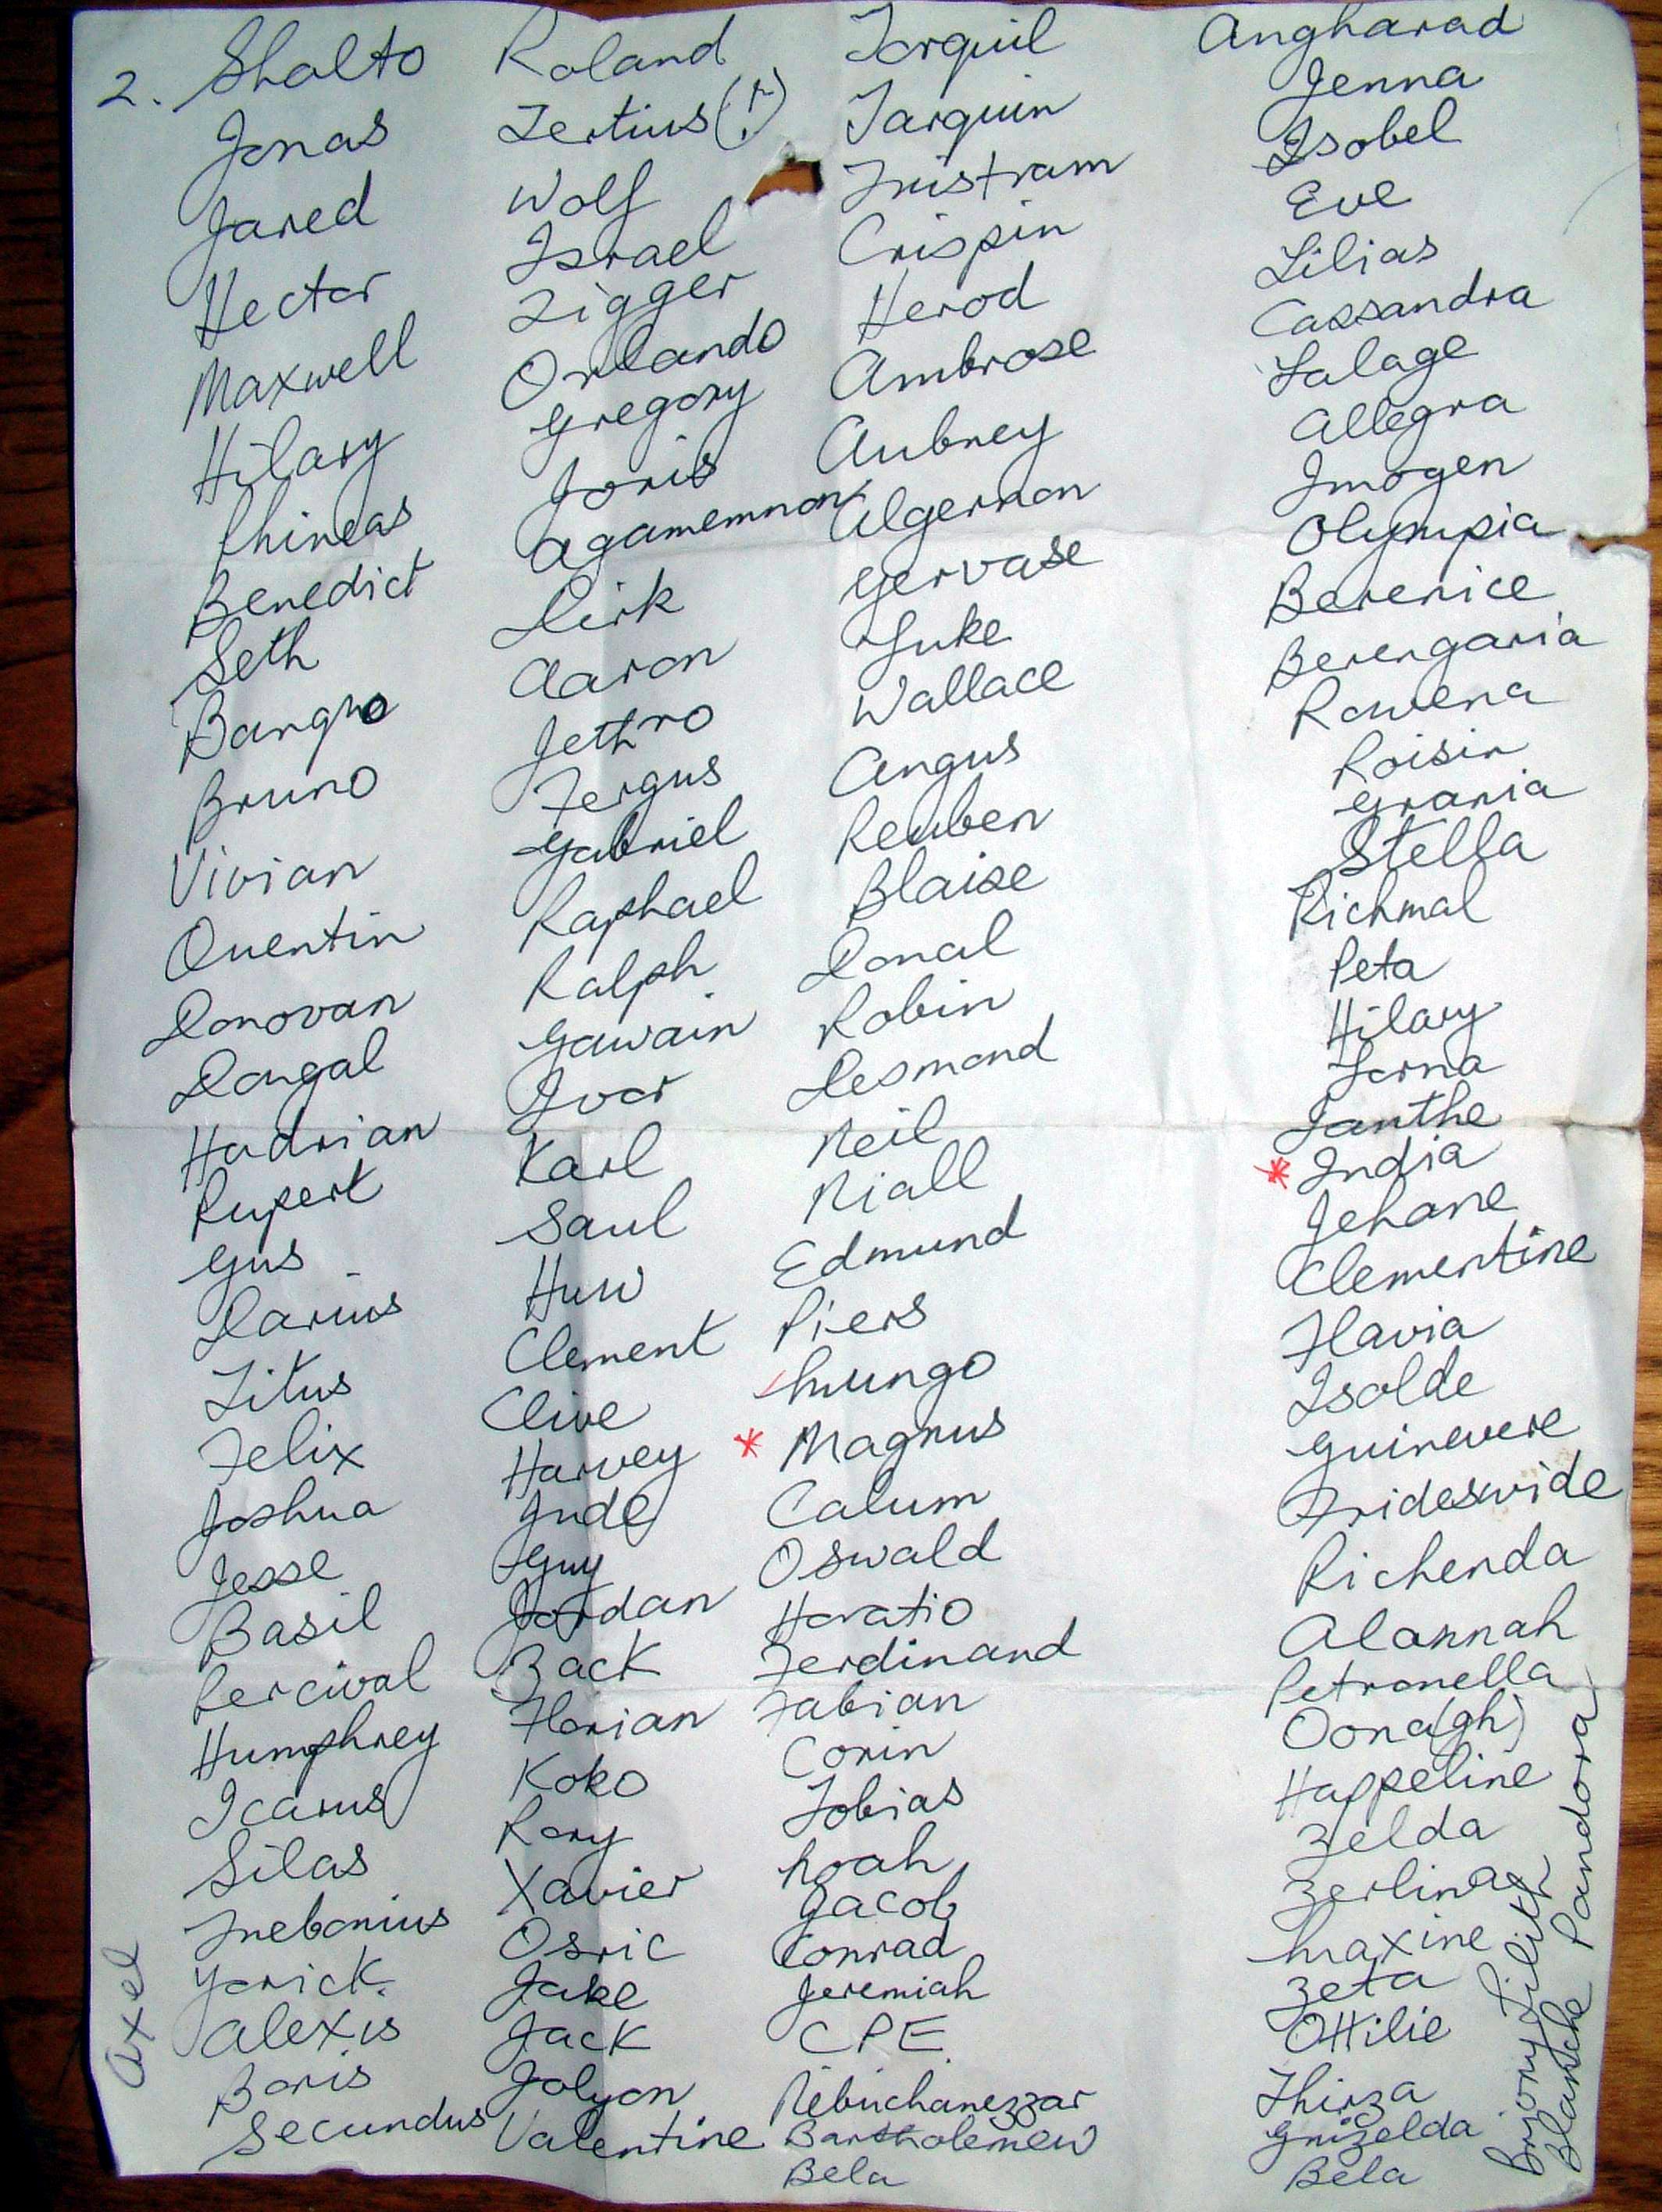 2. Sholto
Jonas
Jared
Hector
Maxwell
Hilary
Phineas
Benedict
Seth
Banquo
Bruno
Vivian
Quentin
Donovan
Dougal
Hadrian
Rupert
Gus
Darius
Titus
Felix
Joshua
Jesse
Basil
Percival
Humphrey
Icarus
Silas
Trebonius
Yorick
Alexis
Boris
Secundus
Axel
Roland
Tertius (!)
Wolf
Israel
Tigger
Orlando
Gregory
Joris
Agamemnon
Dirk
Aaron
Jethro
Fergus
Gabriel
Raphael
Ralph
Gawain
Ivor
Karl
Saul
Huw
Clement
Clive
Harvey
Jude
Guy
Jordan
Zack
Florian
Koko
Rory
Xavier
Osric
Jake
Jack
Jolyon
Valentine
Torquil
Tarquin
Tristram
Crispin
Herod
Ambrose
Aubrey
Algernon
Gervase
Luke
Wallace
Angus
Reuben
Blaise
Donal
Robin
Desmond
Neil
Niall
Edmund
Piers
Mungo
* Magnus
Calum
Oswald
Horatio
Ferdinand
Fabian
Corin
Tobias
Noah
Jacob
Conrad
Jeremiah
CPE
Nebuchanezzar
Bartholemew
Bela
Angharad
Jenna
Isobel
Eve
Lilias
Cassandra
Lalage
Allegra
Imogen
Olympia
Berenice
Berengaria
Rowena
Roisin
Grania
Stella
Richmal
Peta
Hilary
Lorna
Ianthe
* India
Jehane
Clementine
Flavia
Isolde
Guinevere
Frideswide
Richenda
Alannah
Petronella
Oona(gh)
Happeline
Zelda
Zerlina
Maxine
Zeta
Ottilie
Thirza
Grizelda
Bela
Bryony Lilith
Blanche Pandora